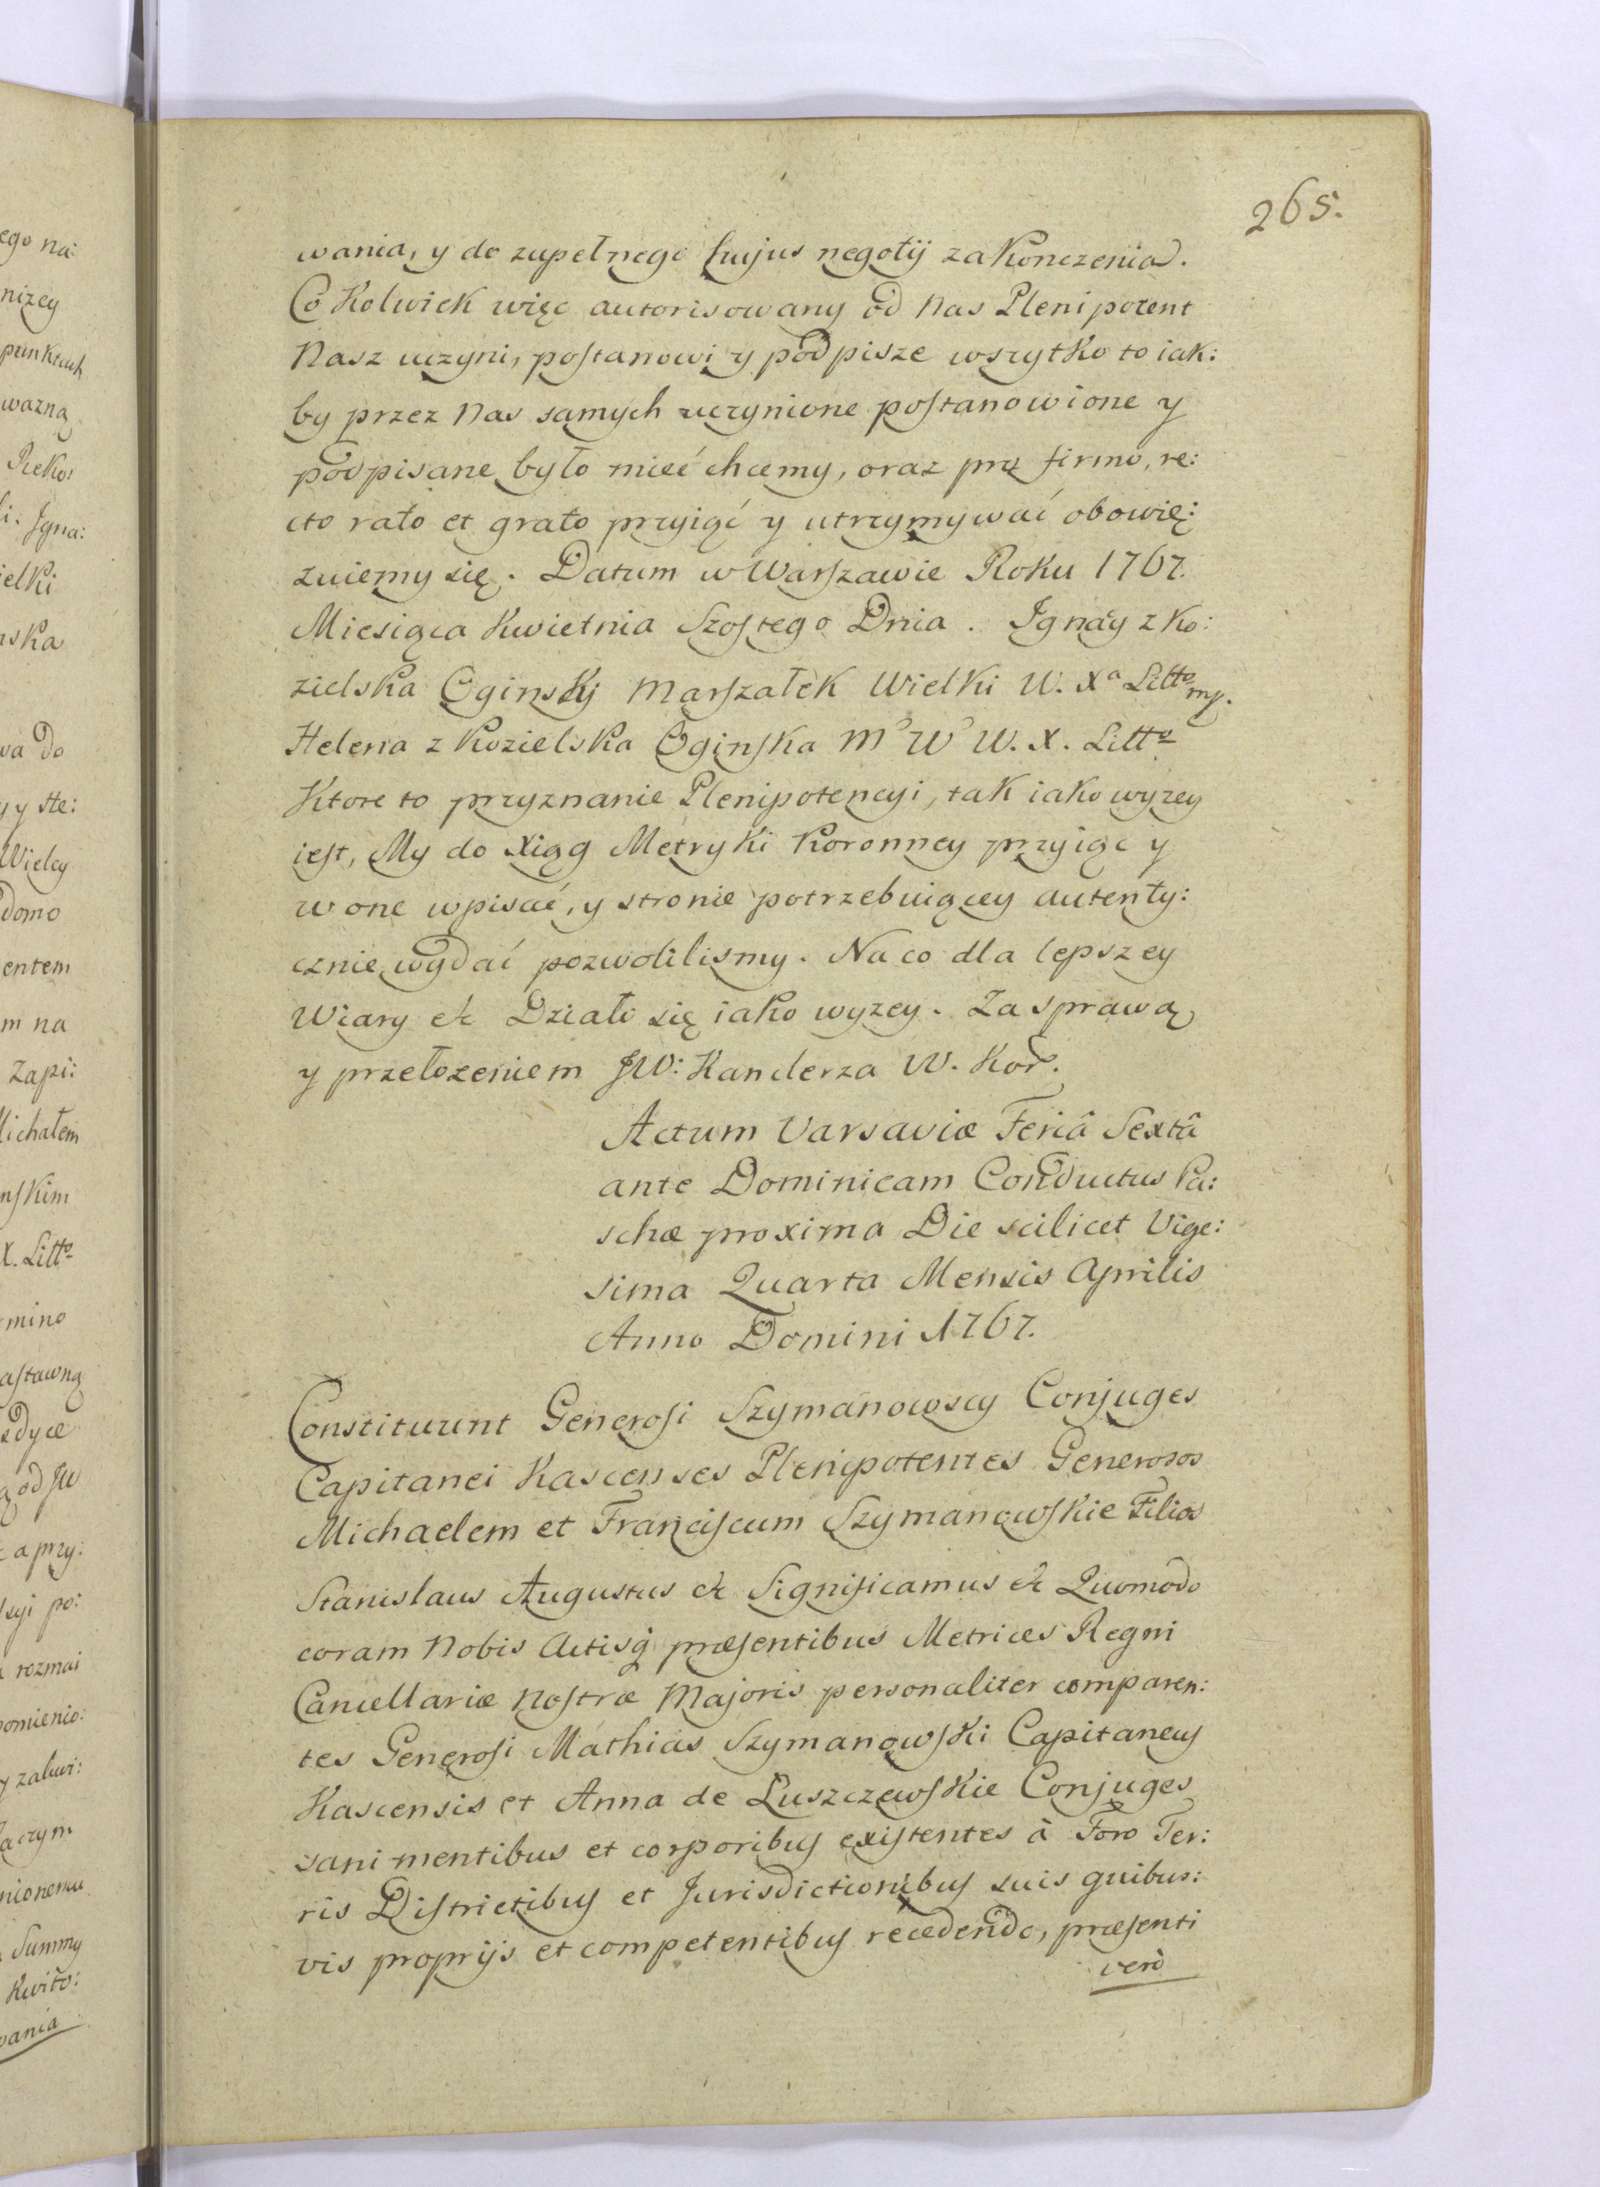 265.
wania, y do zupełnego hujus negotij zakonczenia.
Co kolwiek więc autorisowany od nas Plenipotent
nasz uczyni, postanowi y podpisze wszytko to iak:
by przez nas samych uczynione postanowione y
podpisane było mieć chcemy, oraz pro firmo, re:
cto rato et grato przyiąć y utrzymywać obowię:
zuiemy się. Datum w Warszawie Roku 1767.
Miesiąca Kwietnia Szostego Dnia. Ignacy z Ko:
zielska Oginskj Marszałek Wielki W. Xa Litto mp.
Helena z Kozielska Oginska M W W. X. Litto
Ktore to przyznanie Plenipotencyi, tak iako wyzey
iest, My do Xiąg Metryki Koronney przyiąc y
w one wpisać, y stronie potrzebuiącey autenty:
cznie wydać pozwolilismy. Na co dla lepszey
Wiary &c Działo się iako wyzey. Za sprawą
y przełozeniem JW: Kanclerza W. Kor.
Actum Varsaviæ Feriâ Sextâ
ante Dominicam Conductus Pa:
schæ proxima Die scilicet Vige:
sima Quarta Mensis Aprilis
Anno Domini 1767.
Constituunt Generosi Szymanowscy Conjuges
Capitanei Kascenses Plenipotentes Generosos
Michaelem et Franciscum Szymanowskie Filios
Stanislaus Augustus &c Significamus &c Quomodo
coram Nobis Actisq́ præsentibus Metrices Regni
Cancellariæ Nostræ Majoris personaliter comparen:
tes Generosi Mathias Szymanowski Capitaneus
Kascensis et Anna de Luszczewskie Conjuges
sani mentibus et corporibus existentes à Foro Ter:
ris Districtibus et Jurisdictionibus suis quibus:
vis proprijs et competentibus recedendo, præsenti
verò
ego na:
nizey
punktach
wazną
Reko:
Igna:
ielki
nska
wa do
y y ste:
Wielcy
domo
entem
m na
Zapi:
Michałem
nskim
X. Litto
mino
astawną
edyce
ą od JW
a przy:
syi po:
rozmai
pomienio:
y zabiwi:
aczym
nionemu
Summy
Kwito:
wania